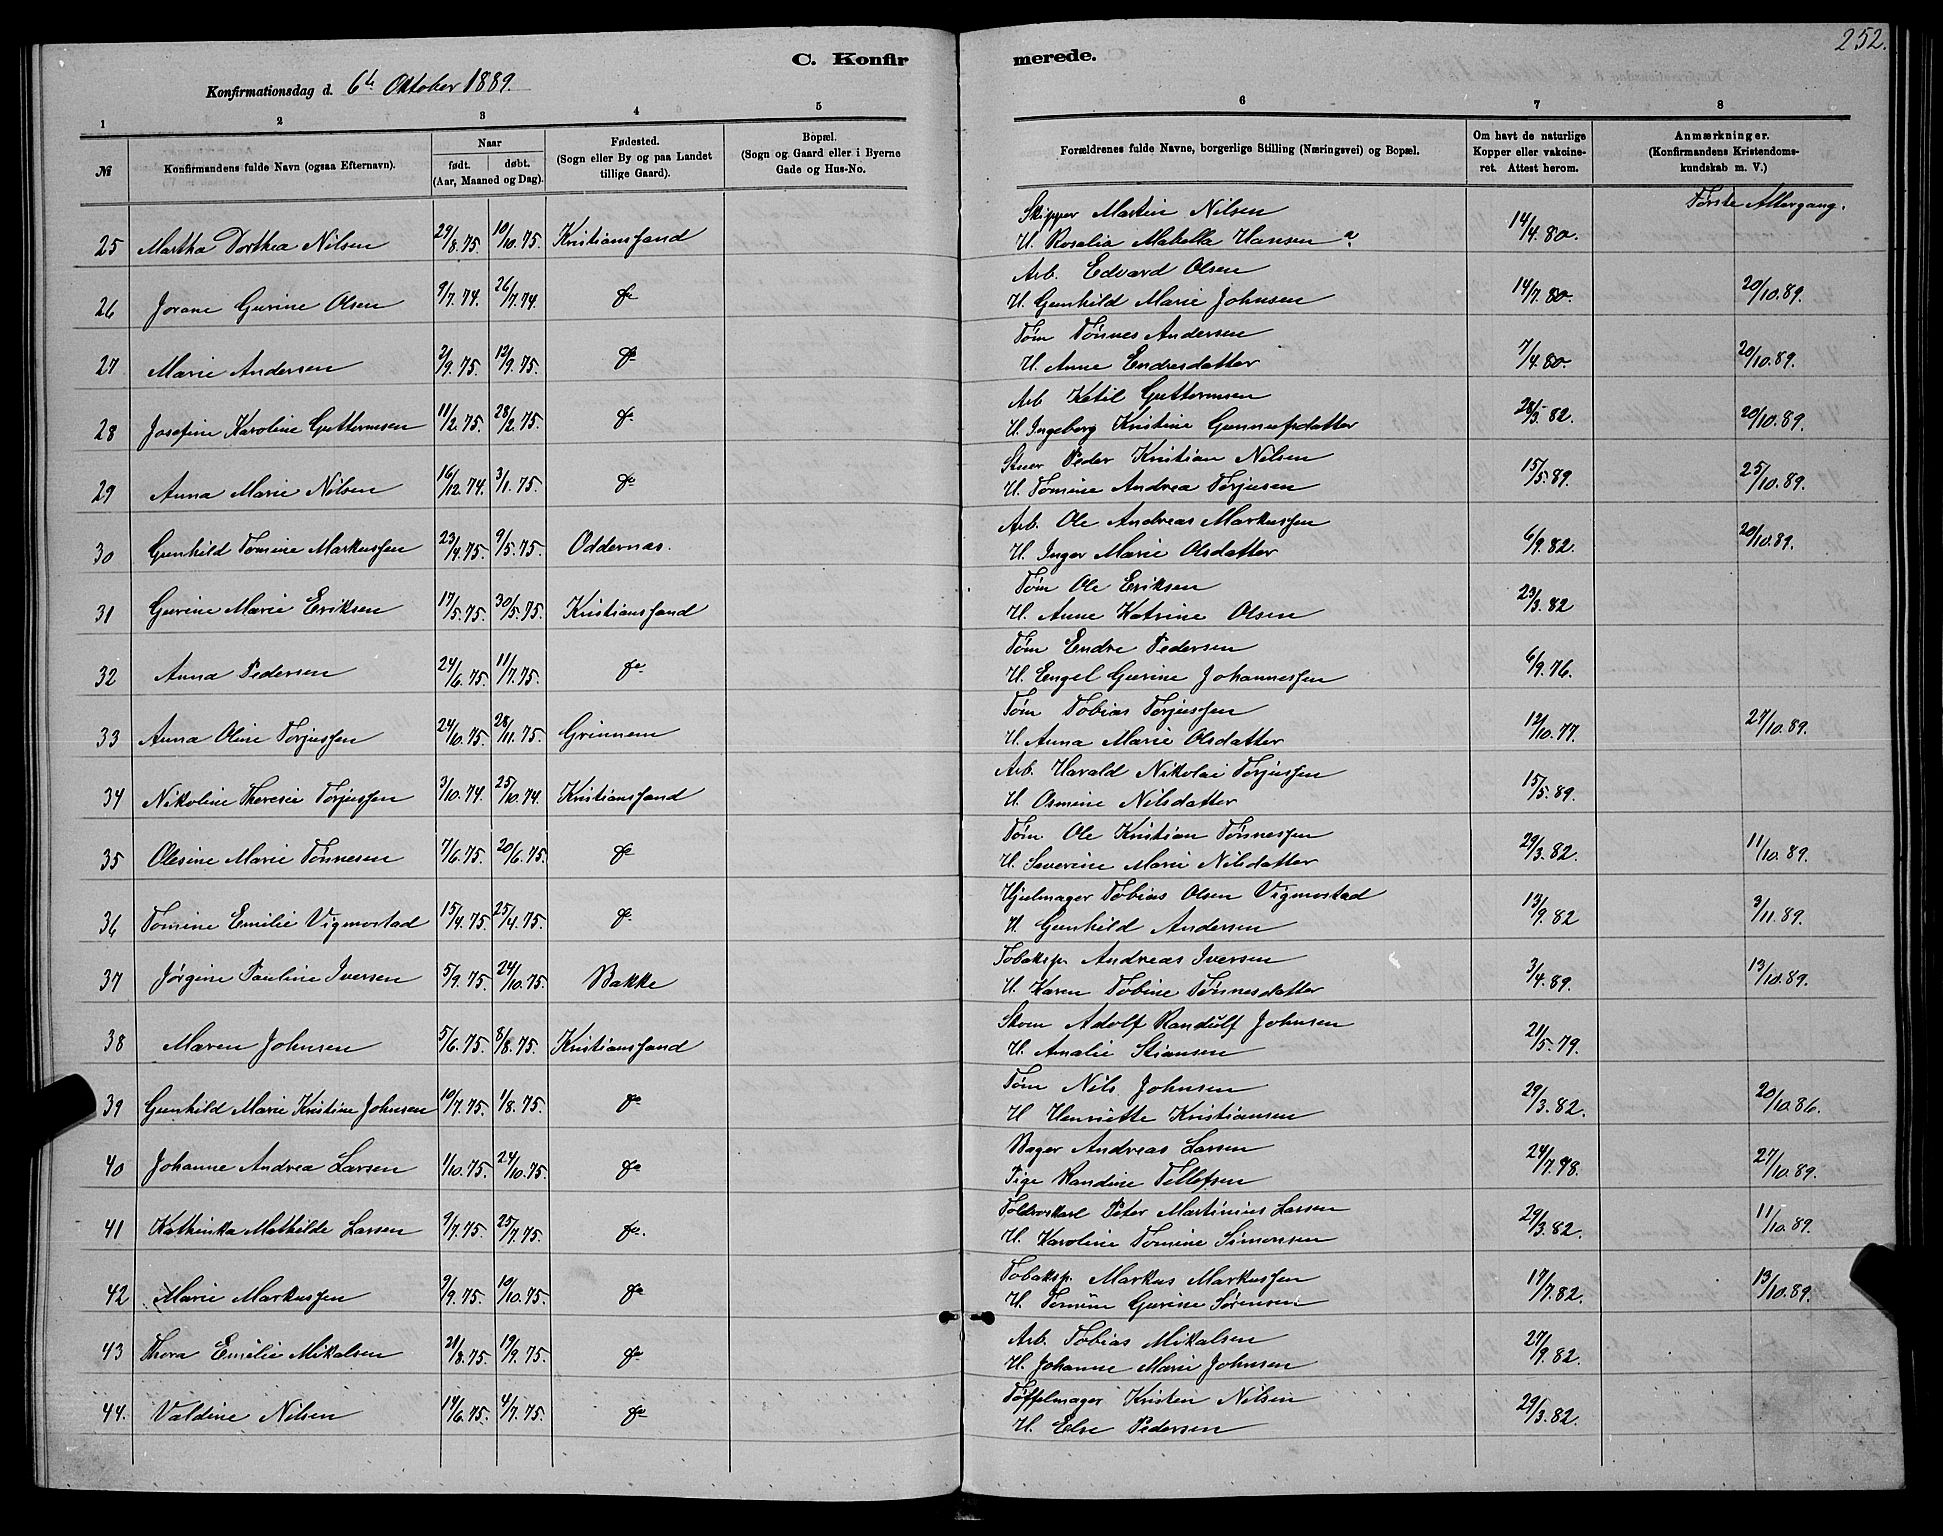 252.
C. Konfirmerede.
Konfirmationsdag d. 6te Oktober 1889.
1 2 3 4 5 6 7 8
№ Konfirmandens fulde Navn (ogsaa Efternavn). Naar født. døbt. (Aar, Maaned og Dag). Fødested. (Sogn eller By og paa Landet tillige Gaard). Bopæl. (Sogn og Gaard eller i Byerne Gade og Hus-No. Forældrenes fulde Navne, borgerlige Stilling (Næringsvei) og Bopæl. Om havt de naturlige Kopper eller vakcineret. Attest herom. Anmærkninger. (Konfirmandens Kristendomskundskab m. V.)
Første Altergang.
25 Martha Dorthea Nilsen 29/8.75. 10/10.75. Kristianssand Skipper Martin Nilsen
H. Rosalia Mabella Hansen 14/4.80.
26 Jorane Gurine Olsen 9/7.74. 26/7.74. do Arb. Edvard Olsen
H. Gunhild Marie Johnsen 14/7.80. 20/10.89.
27 Marie Andersen 2/9.75. 12/9.75. do Tøm Tønnes Andersen
H. Anne Endresdatter 7/4.80. 20/10.89.
28 Josefine Karoline Guttormsen 11/2.75. 28/2.75. do Arb Ketil Guttormsen
H. Ingeborg Kristine Gunnufsdatter 28/5.82. 20/10.89.
29 Anna Marie Nilsen 16/12.74. 3/1.75. do Stuer Peder Kristian Nilsen
H. Tomine Andrea Torjusen 15/5.89. 25/10.89.
30 Gunhild Tomine Markussen 23/4.75. 9/5.75. Oddernæs. Arb. Ole Andreas Markussen
H. Inger Marie Olsdatter 6/9.82. 20/10.89.
31 Gurine Marie Eriksen 17/5.75. 30/5.75. Kristianssand Tøm Ole Eriksen
H. Anne Katrine Olsen 23/3.82
32 Anna Pedersen 24/6.75. 11/7.75. do Tøm Endre Pedersen
H. Engel Gurine Johannessen 6/9.76.
33 Anna Oline Torjussen 24/10.75. 28/11.75. Grimnem Tøm Tobias Torjussen
H. Anna Marie Olsdatter 12/10.77. 27/10.89.
34 Nikoline Theresie Torjussen 3/10.74. 25/10.74. Kristianssand Arb. Harald Nikolai Torjussen
H. Osmine Nilsdatter 15/5.89.
35 Olesine Marie Tønnesen 7/6.75. 20/6.75. do Tøm Ole Kristian Tønnessen
H. Severine Marie Nilsdatter 29/3.82. 11/10.89.
36 Tomine Emilie Vigmostad 15/4.75. 25/4.75. do Hjulmager Tobias Olsen Vigmostad
H. Gunhild Andersen 13/9.82 3/11.89.
37 Jørgine Pauline Iversen 5/9.75. 24/10.75. Bakke Tobaksp. Andreas Iversen
H. Karen Tobine Tønnesdatter 3/4.89. 13/10.89.
38 Maren Johnsen 5/6.75. 8/8.75. Kristianssand Skom Adolf Randulf Johnsen
H. Amalie Stiansen 21/5.79.
39 Gunhild Marie Kristine Johnsen 10/7.75. 1/8.75. do Tøm Nils Johnsen
H Henriette Kristiansen 29/3.82. 20/10.86.
40 Johanne Andrea Larsen 1/10.75. 24/10.75. do Bager Andreas Larsen
Pige Randine Tellefsen 24/7.78. 27/10.89.
41 Kathinka Mathilde Larsen 9/7.75. 25/7.75. do. Toldroskarl Peter Martinius Larsen
H. Karoline Tomine Simonsen 29/3.82. 11/10.89.
42 Marie Markussen 9/9.75. 10/10.75. do Tobaksp. Markus Markussen
H. Tomine Gurine Sørensen 17/7.82. 13/10.89.
43 Thora Emilie Mikalsen 21/8.75. 19/9.75. do Arb. Tobias Mikalsen
H. Johanne Marie Johnsen 27/9.82.
44. Valdine Nilsen 14/6.75. 4/7.75. do Tøffelmager Kristen Nilsen
H. Else Pedersen 29/3.82.